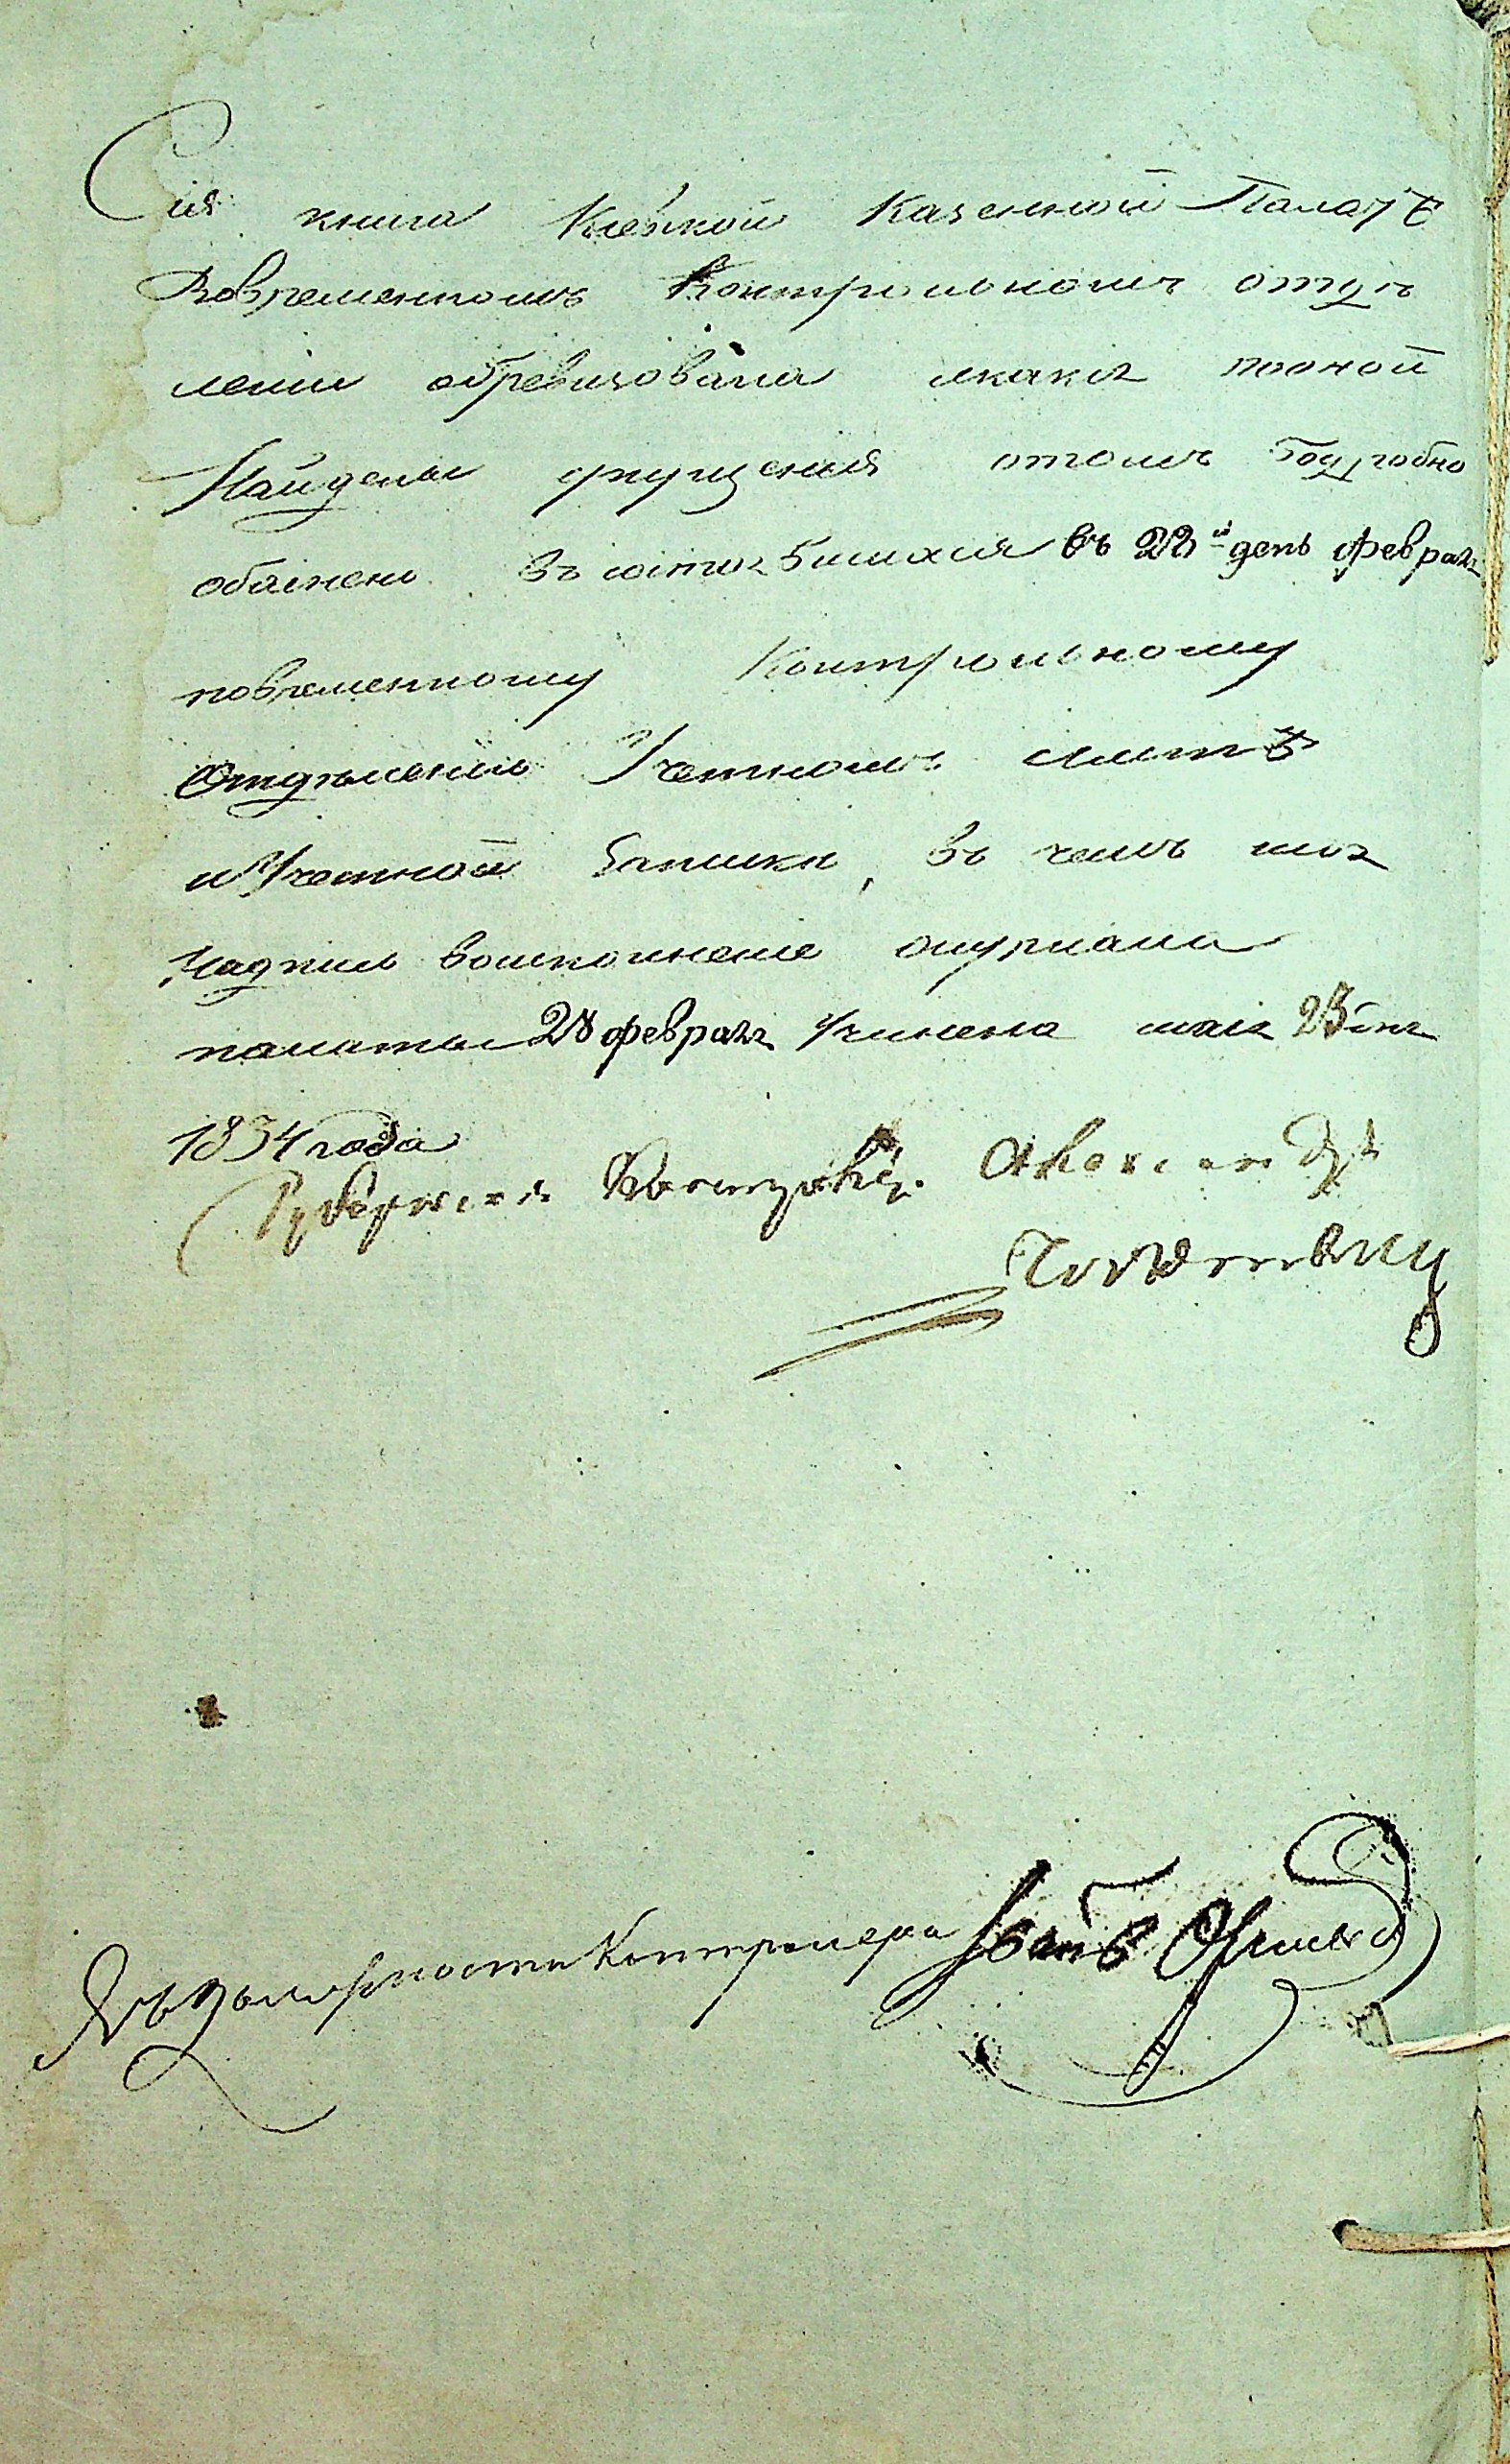 Сія книга Кіевской Казенной Палатѣ
Вовременномъ Контрольномъ отдѣ
леніи обревизована икакія пооной
Найдены упущенія отомъ Подробно
обаснено въ состоявшихся въ 22й день февраля
повременному Контрольному
Отдѣленію Учетномъ листѣ
и Учетной Запискѣ, въ чемъ сія
Надпись воисполненіе журнала
палаты 28 февраля Учинена маія 25 дня
1834 года
Губернскій Контролёръ Александръ
Въ должности Контролера